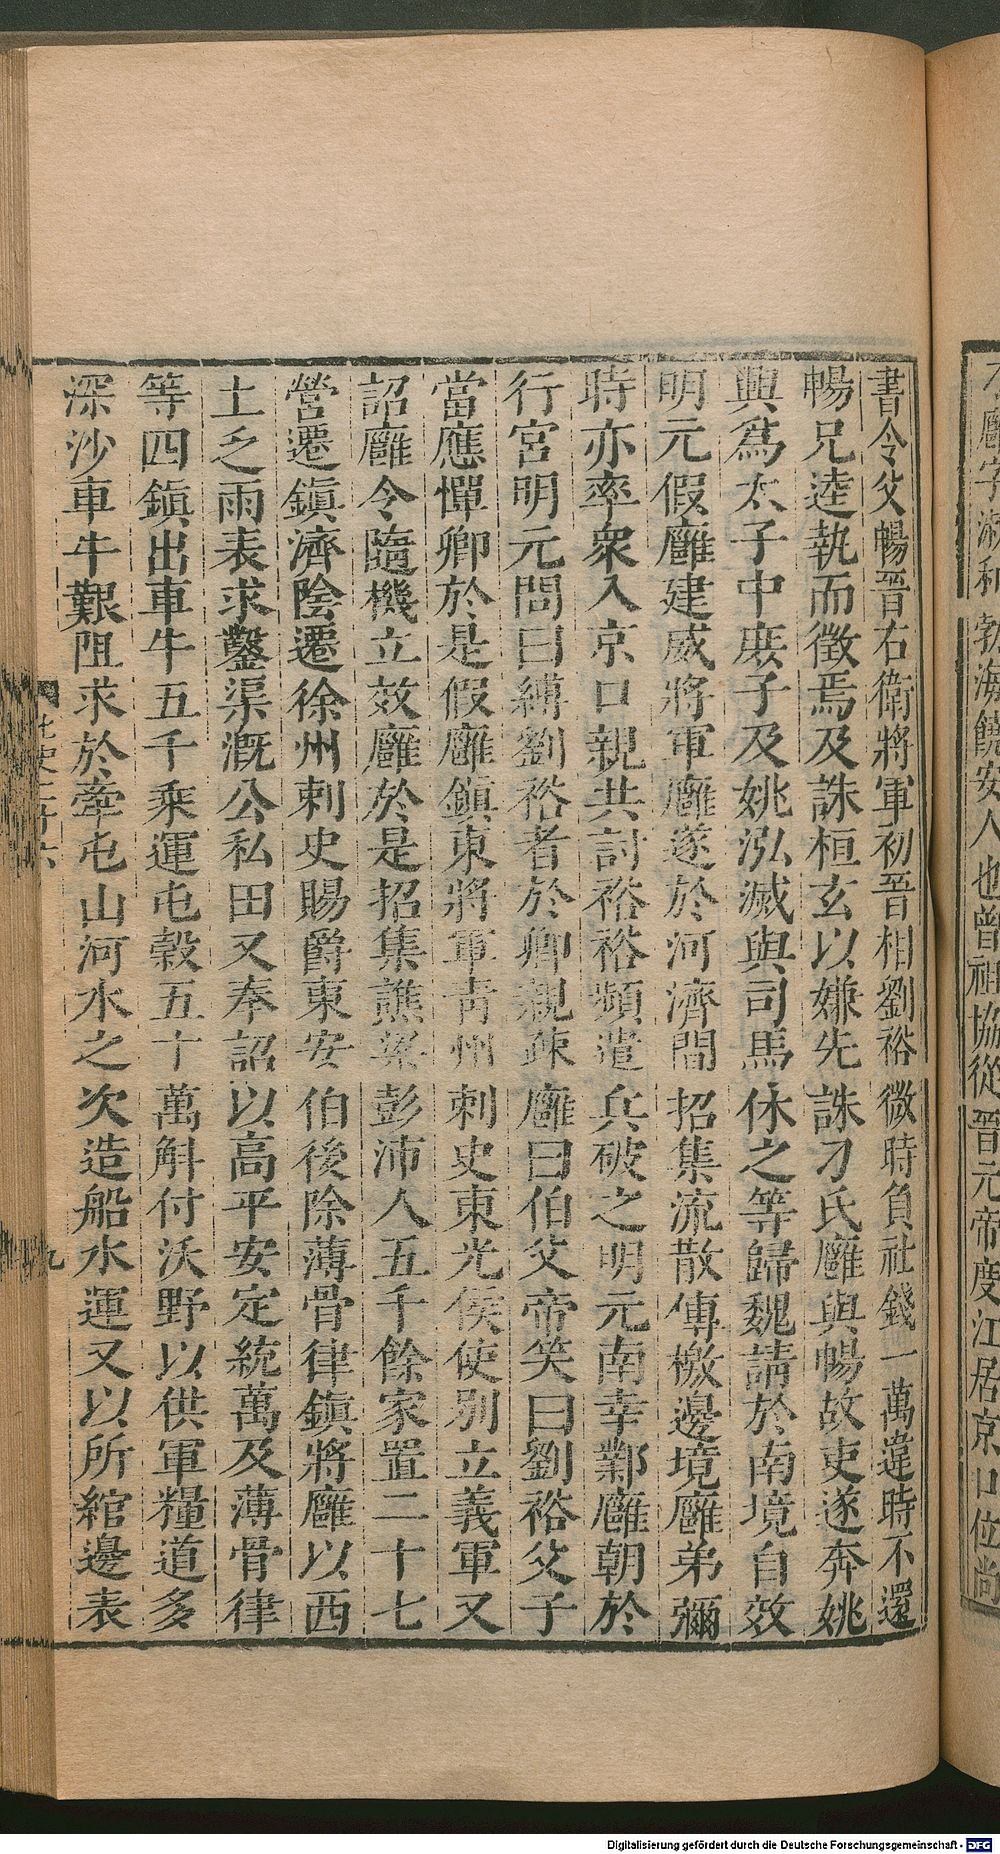 刁雝字淑和勃海饒安人也曾祖協從晉元帝度江居京口位尚
書令父暢晉右衛將軍初晉相劉裕微時負社錢一萬違時不還
暢兄逵執而徵焉及誅桓玄以嫌先誅刁氏雝與暢故吏遂奔姚
興爲太子中庶子及姚泓滅與司馬休之等歸魏請於南境自效
明元假雝建威將軍雝遂於河濟間招集流散傳檄邊境雝弟彌
時亦率衆入京口親共討裕裕頻遣兵破之明元南幸鄴雝朝於
行宮明元問曰縛劉裕者於卿親疎雝曰伯父帝笑曰劉裕父子
當應憚卿於是假雝鎮東將軍青州刺史東光侯使別立義軍又
詔雝令隨機立效雝於是招集譙梁彭沛人五千餘家置二十七
營遷鎮濟陰遷徐州刺史賜爵東安伯後除薄骨律鎮將雝以西
土乏雨表求鑿渠溉公私田又奉詔以高平安定統萬及薄骨律
等四鎮出車牛五千乘運屯穀五十萬斛付沃野以供軍糧道多
深沙車牛艱阻求於牽屯山河水之次造船水運又以所綰邊表
北史二十六
九
Digitalisierung gefördert durch die Deutsche Forschungsgemeinschaft - DFG